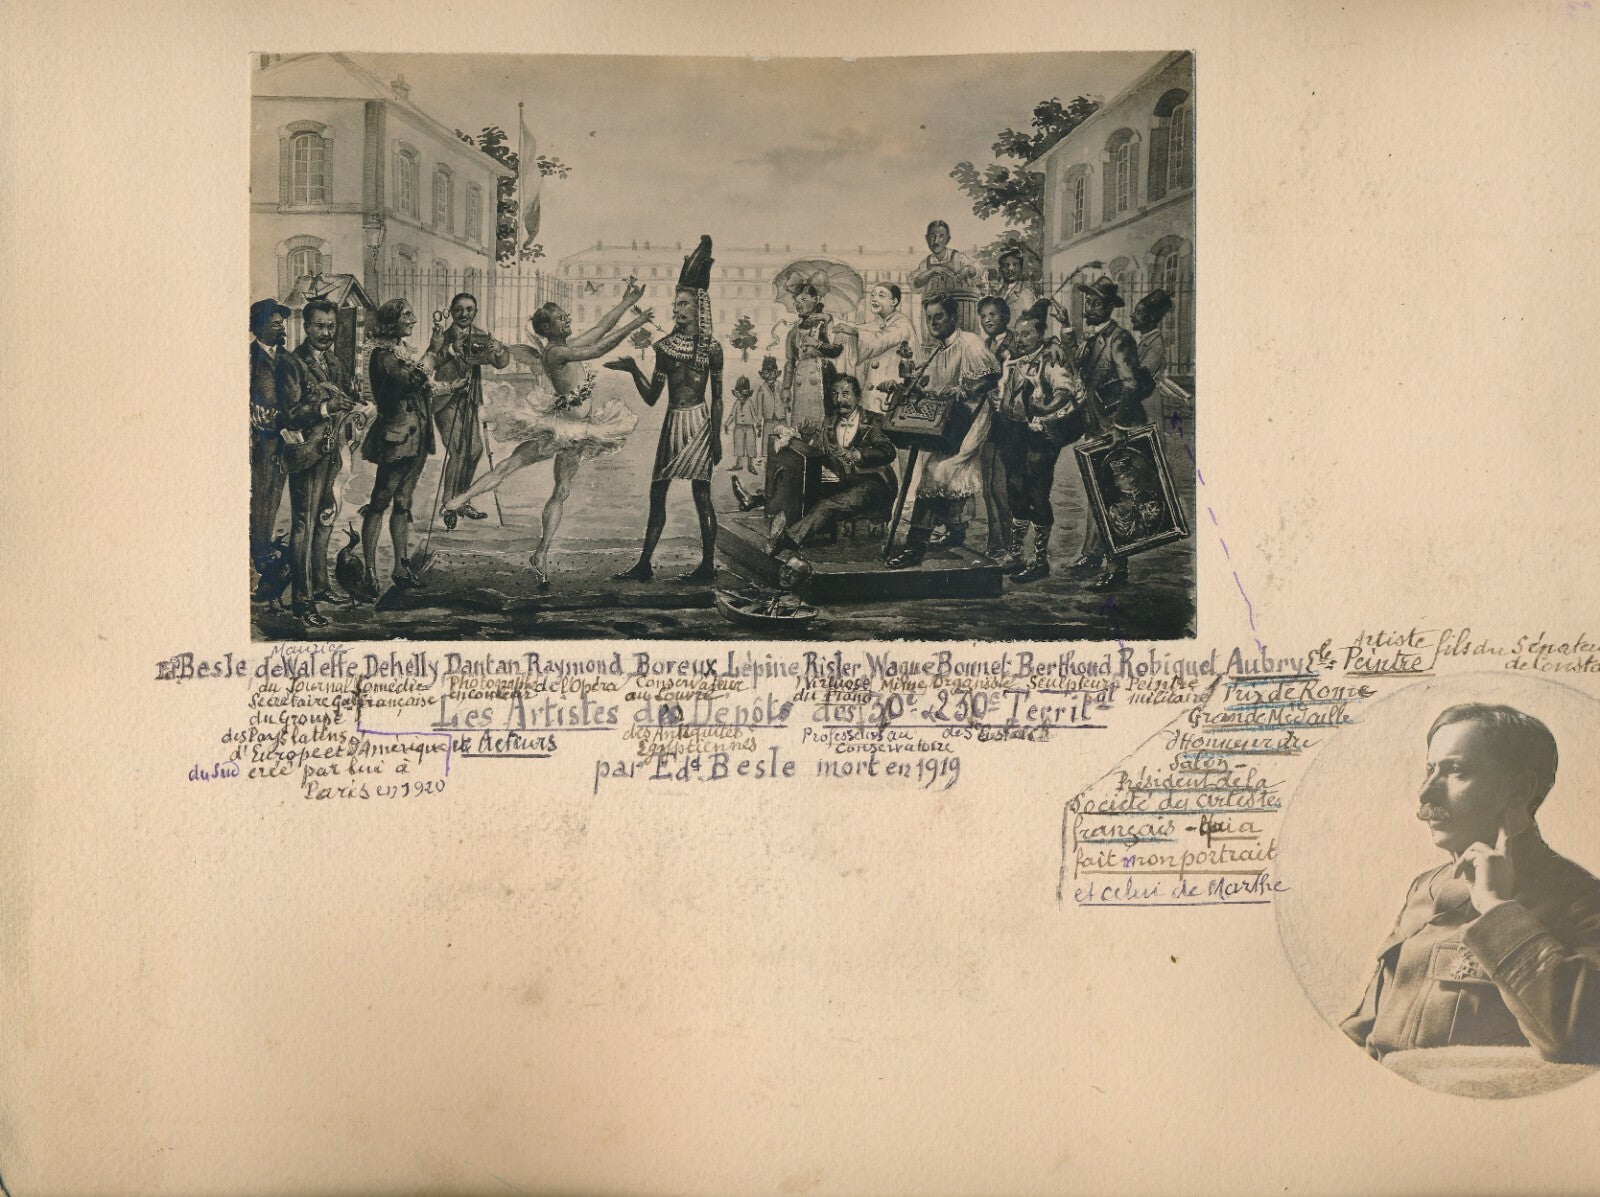 Maurice
Ed. Besle de Waleffe Dehelly Dantan Raymond Boreux Lépine Risler Wague Bonnet Berthoud Robiquet Aubry Ele Artiste Peintre fils du Sénateur
du Journal
Secrétaire Gal
du Groupe
des Pays latins
d'Europe et d'Amérique
du Sud créé par lui à
Paris en 1920
Comédie
Française
Photographe
en couleur
de l'Opéra
Conservateur
au Louvre
des Antiquités
Egyptiennes
Virtuose
du Piano
Professeur au
Conservatoire
Mime
Organiste
de St Eustache
Sculpteur
Peintre
militaire
Prix de Rome
Grande Médaille
d'Honneur du
Salon -
Président de la
Société des artistes
français - Qui a
fait mon portrait
et celui de Marthe
Les Artistes des Dépôts des 30e & 230e Territal
et Acteurs
par Edd Besle mort en 1919